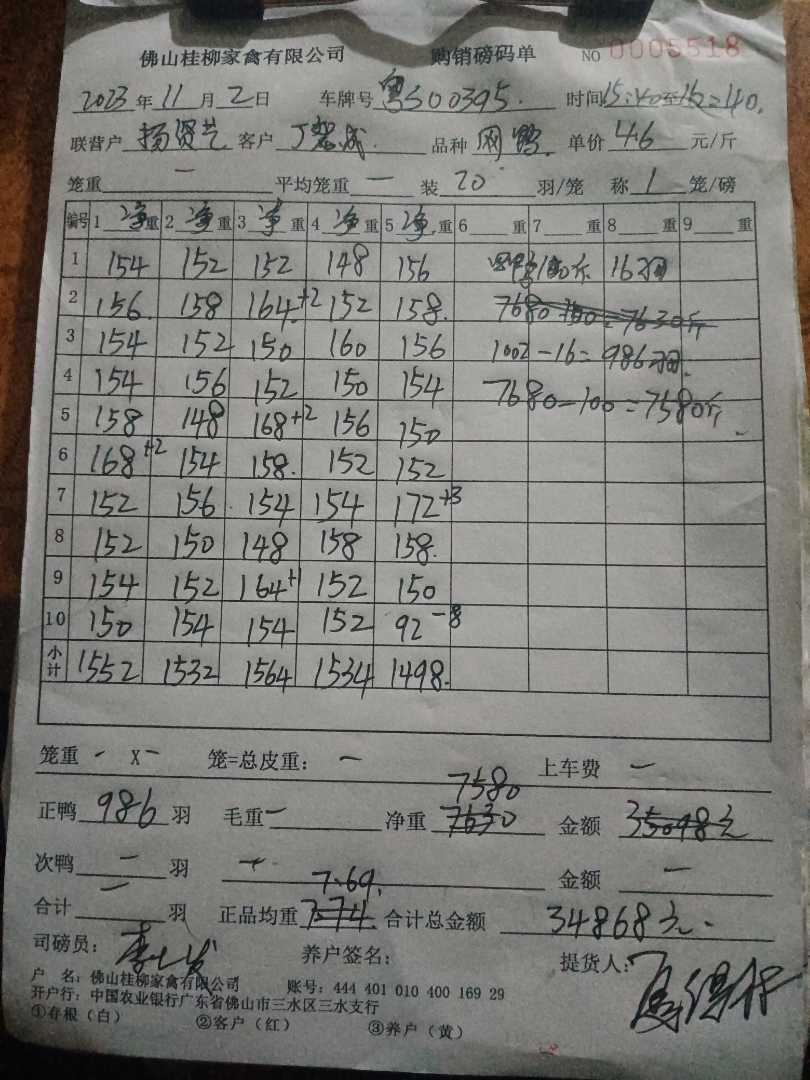 佛山桂柳家禽有限公司 购销磅码单 NO 0005518
2023年11月2日 车牌号 粤S00395. 时间15:40至16:40.
联营户 杨贤艺 客户 丁 成 品种 网鸭. 单价 4.6 元/斤
笼重 一 平均笼重 一 装 20 羽/笼 称 1 笼/磅
编号 1 净重 2 净重 3 净重 4 净重 5 净重 6 重 7 重 8 重 9 重
1 154 152 152 148 156 100斤 16羽
2 156. 158 164.+2 152 158. 7680 = 7630斤
3 154 152 150 160 156 1002-16=986羽.
4 154 156 152 150 154 7680-100=7580斤
5 158 148 168+2 156 150
6 168+2 154 158. 152 152
7 152 156 154 154 172+3
8 152 150 148 158 158.
9 154 152 164+1 152 150
10 150 154 154 152 92-8
小计 1552 1532 1564 1534 1498.
笼重 - X - 笼=总皮重: 一 上车费 一
7580
正鸭 986 羽 毛重 一 净重 7630 金额 35098元
次鸭 一 羽 金额 一
7.69.
合计 一 羽 正品均重 7.74 合计总金额 34868元.
司磅员: 养户签名: 提货人:
户 名: 佛山桂柳家禽有限公司 账号: 444 401 010 400 169 29
开户行: 中国农业银行广东省佛山市三水区三水支行
①存根(白) ②客户(红) ③养户(黄)